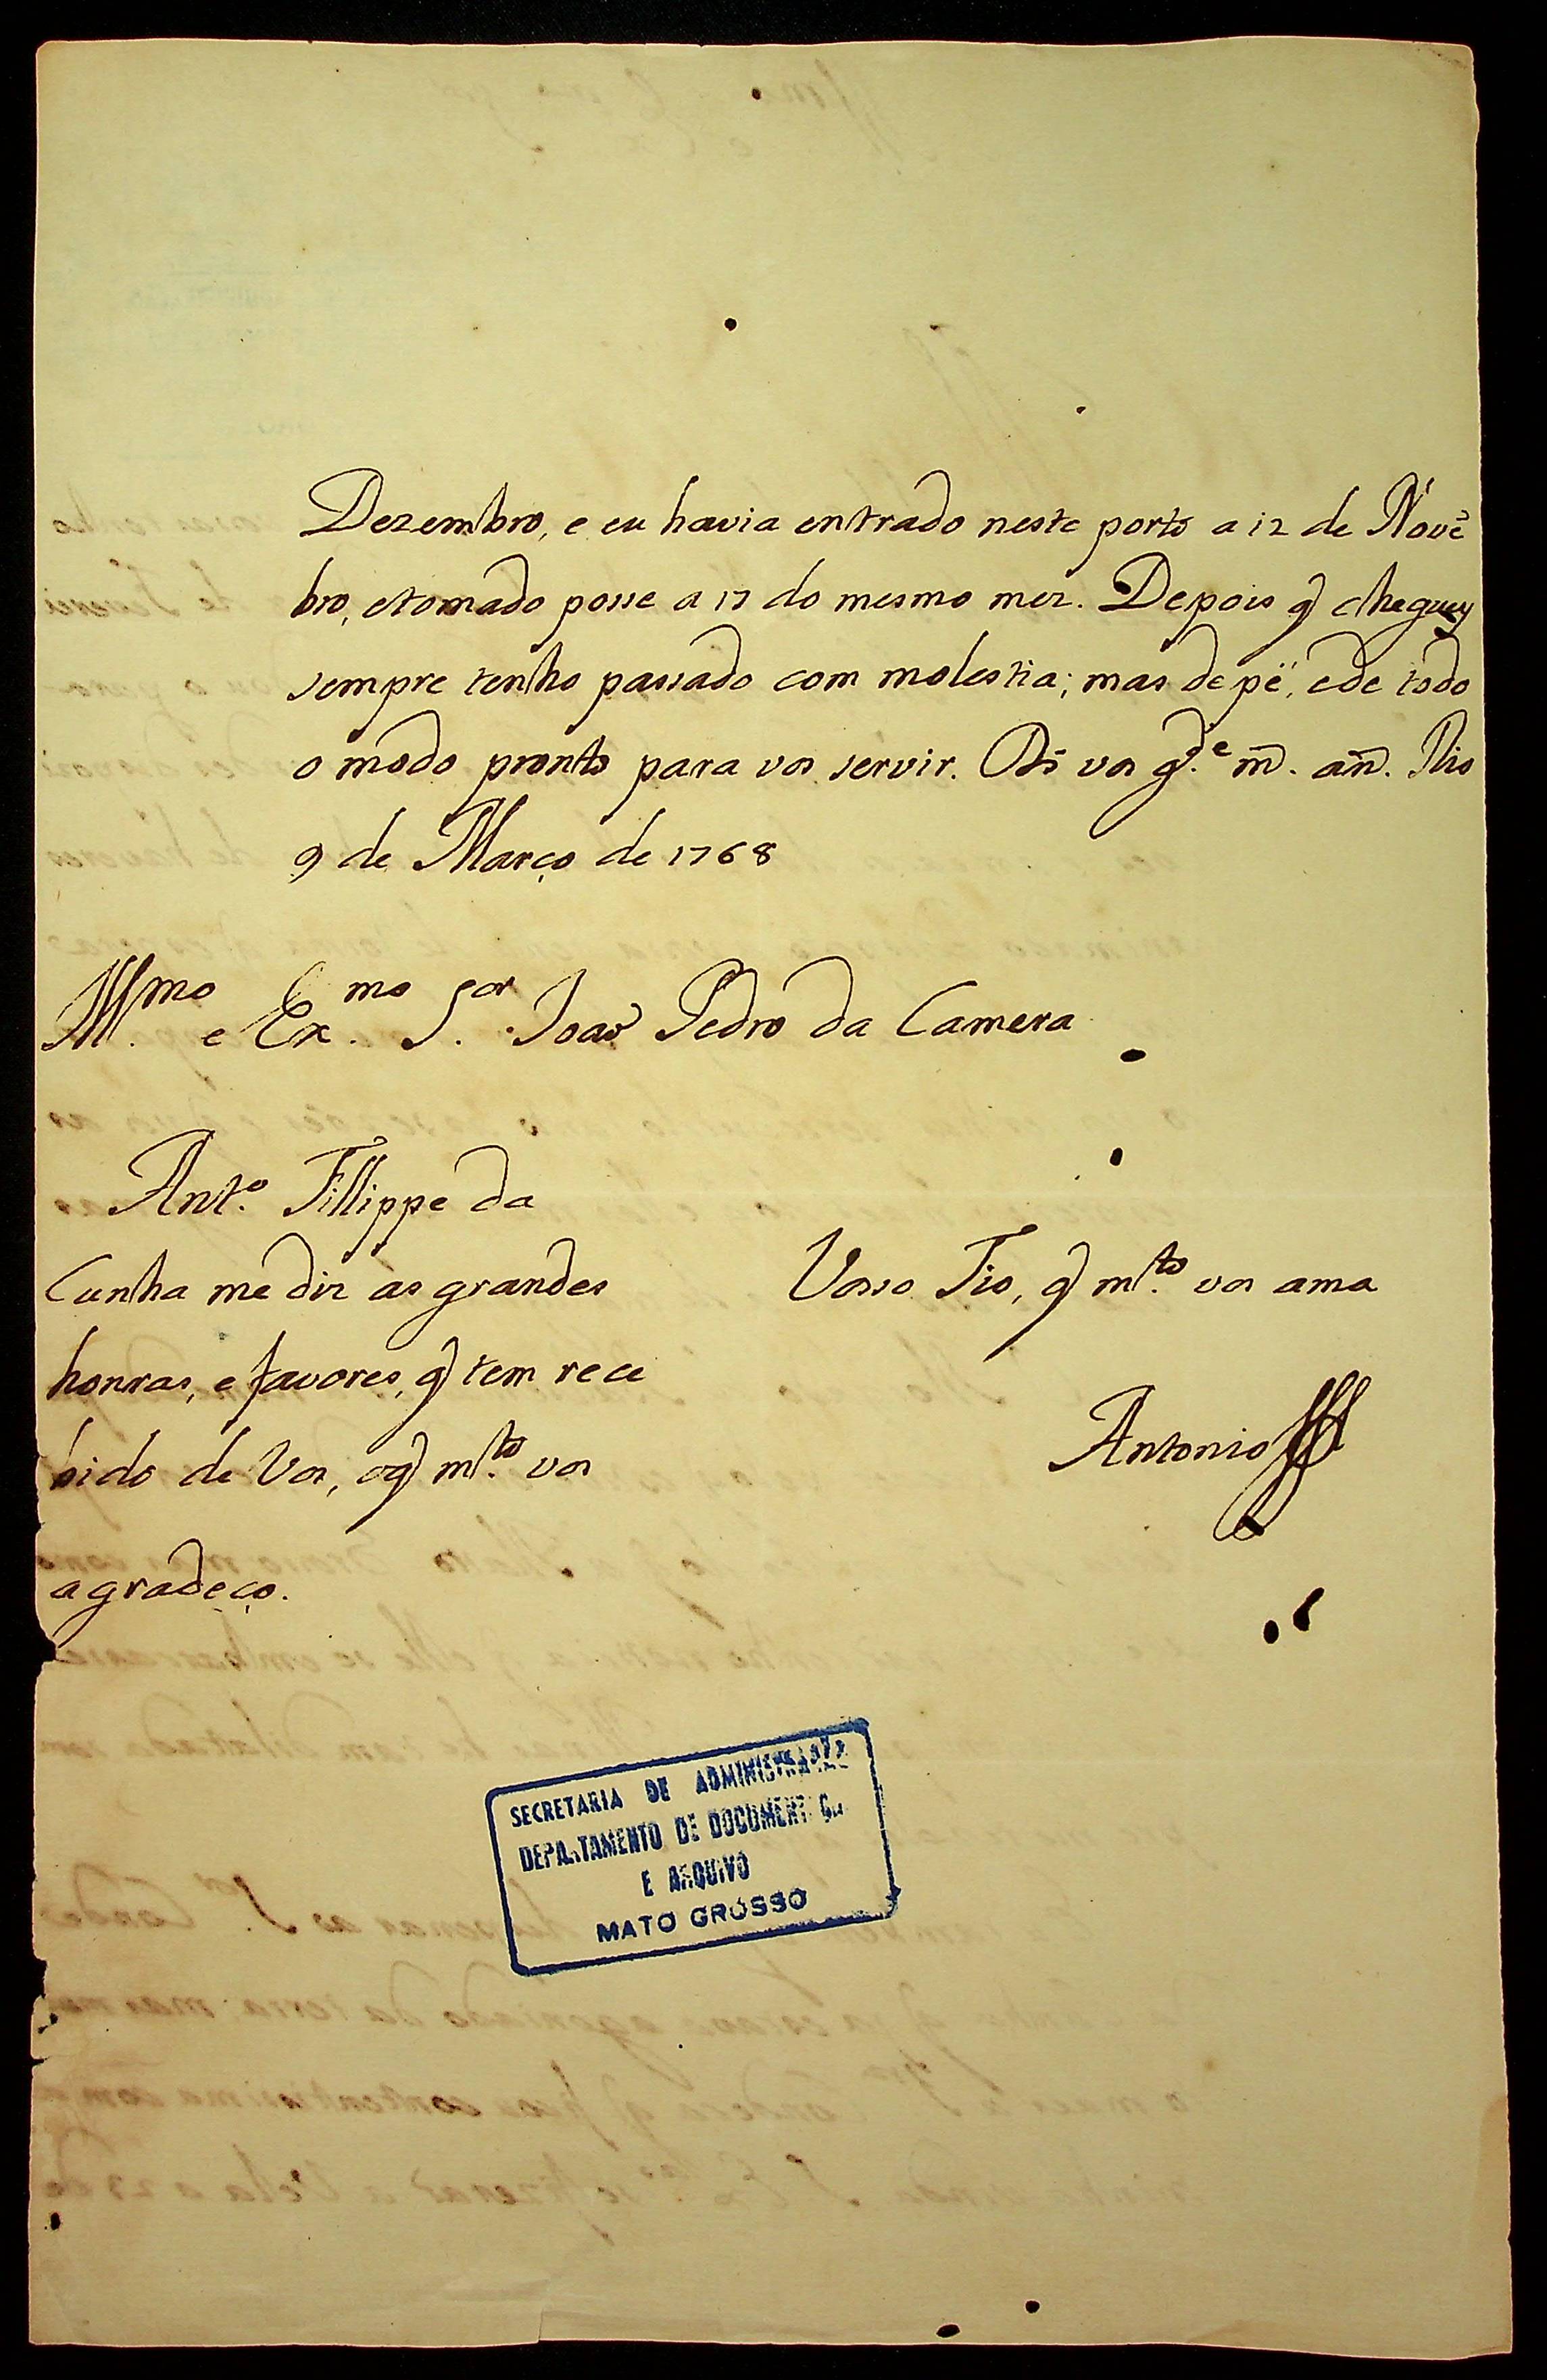 Dezembro, e eu havia entrado neste porto a 12 de Novẽ
bro, etomado posse a 17 do mesmo mez. Depois q̃ cheguey
sempre tenho passado com molestia; mas de pé, ede todo
o modo prontto para vos servir. Ds̃ vos g.de m̃. añ. Rio
9 de Março de 1768
Illmo. e Exmo. Sor. Joaõ Pedro da Camera
Anto. Fillippe da
Cunha me diz as grandes
honras, e favores, q̃ tem rece
bido de Vos, oq̃ mto. vos
agradeço.
Vosso Tio, q̃ mto. vos ama
Antonio
SECRETARIA DE ADMINISTRAÇÃO
DEPARTAMENTO DE DOCUMENTAÇÃO
E ARQUIVO
MATO GROSSO